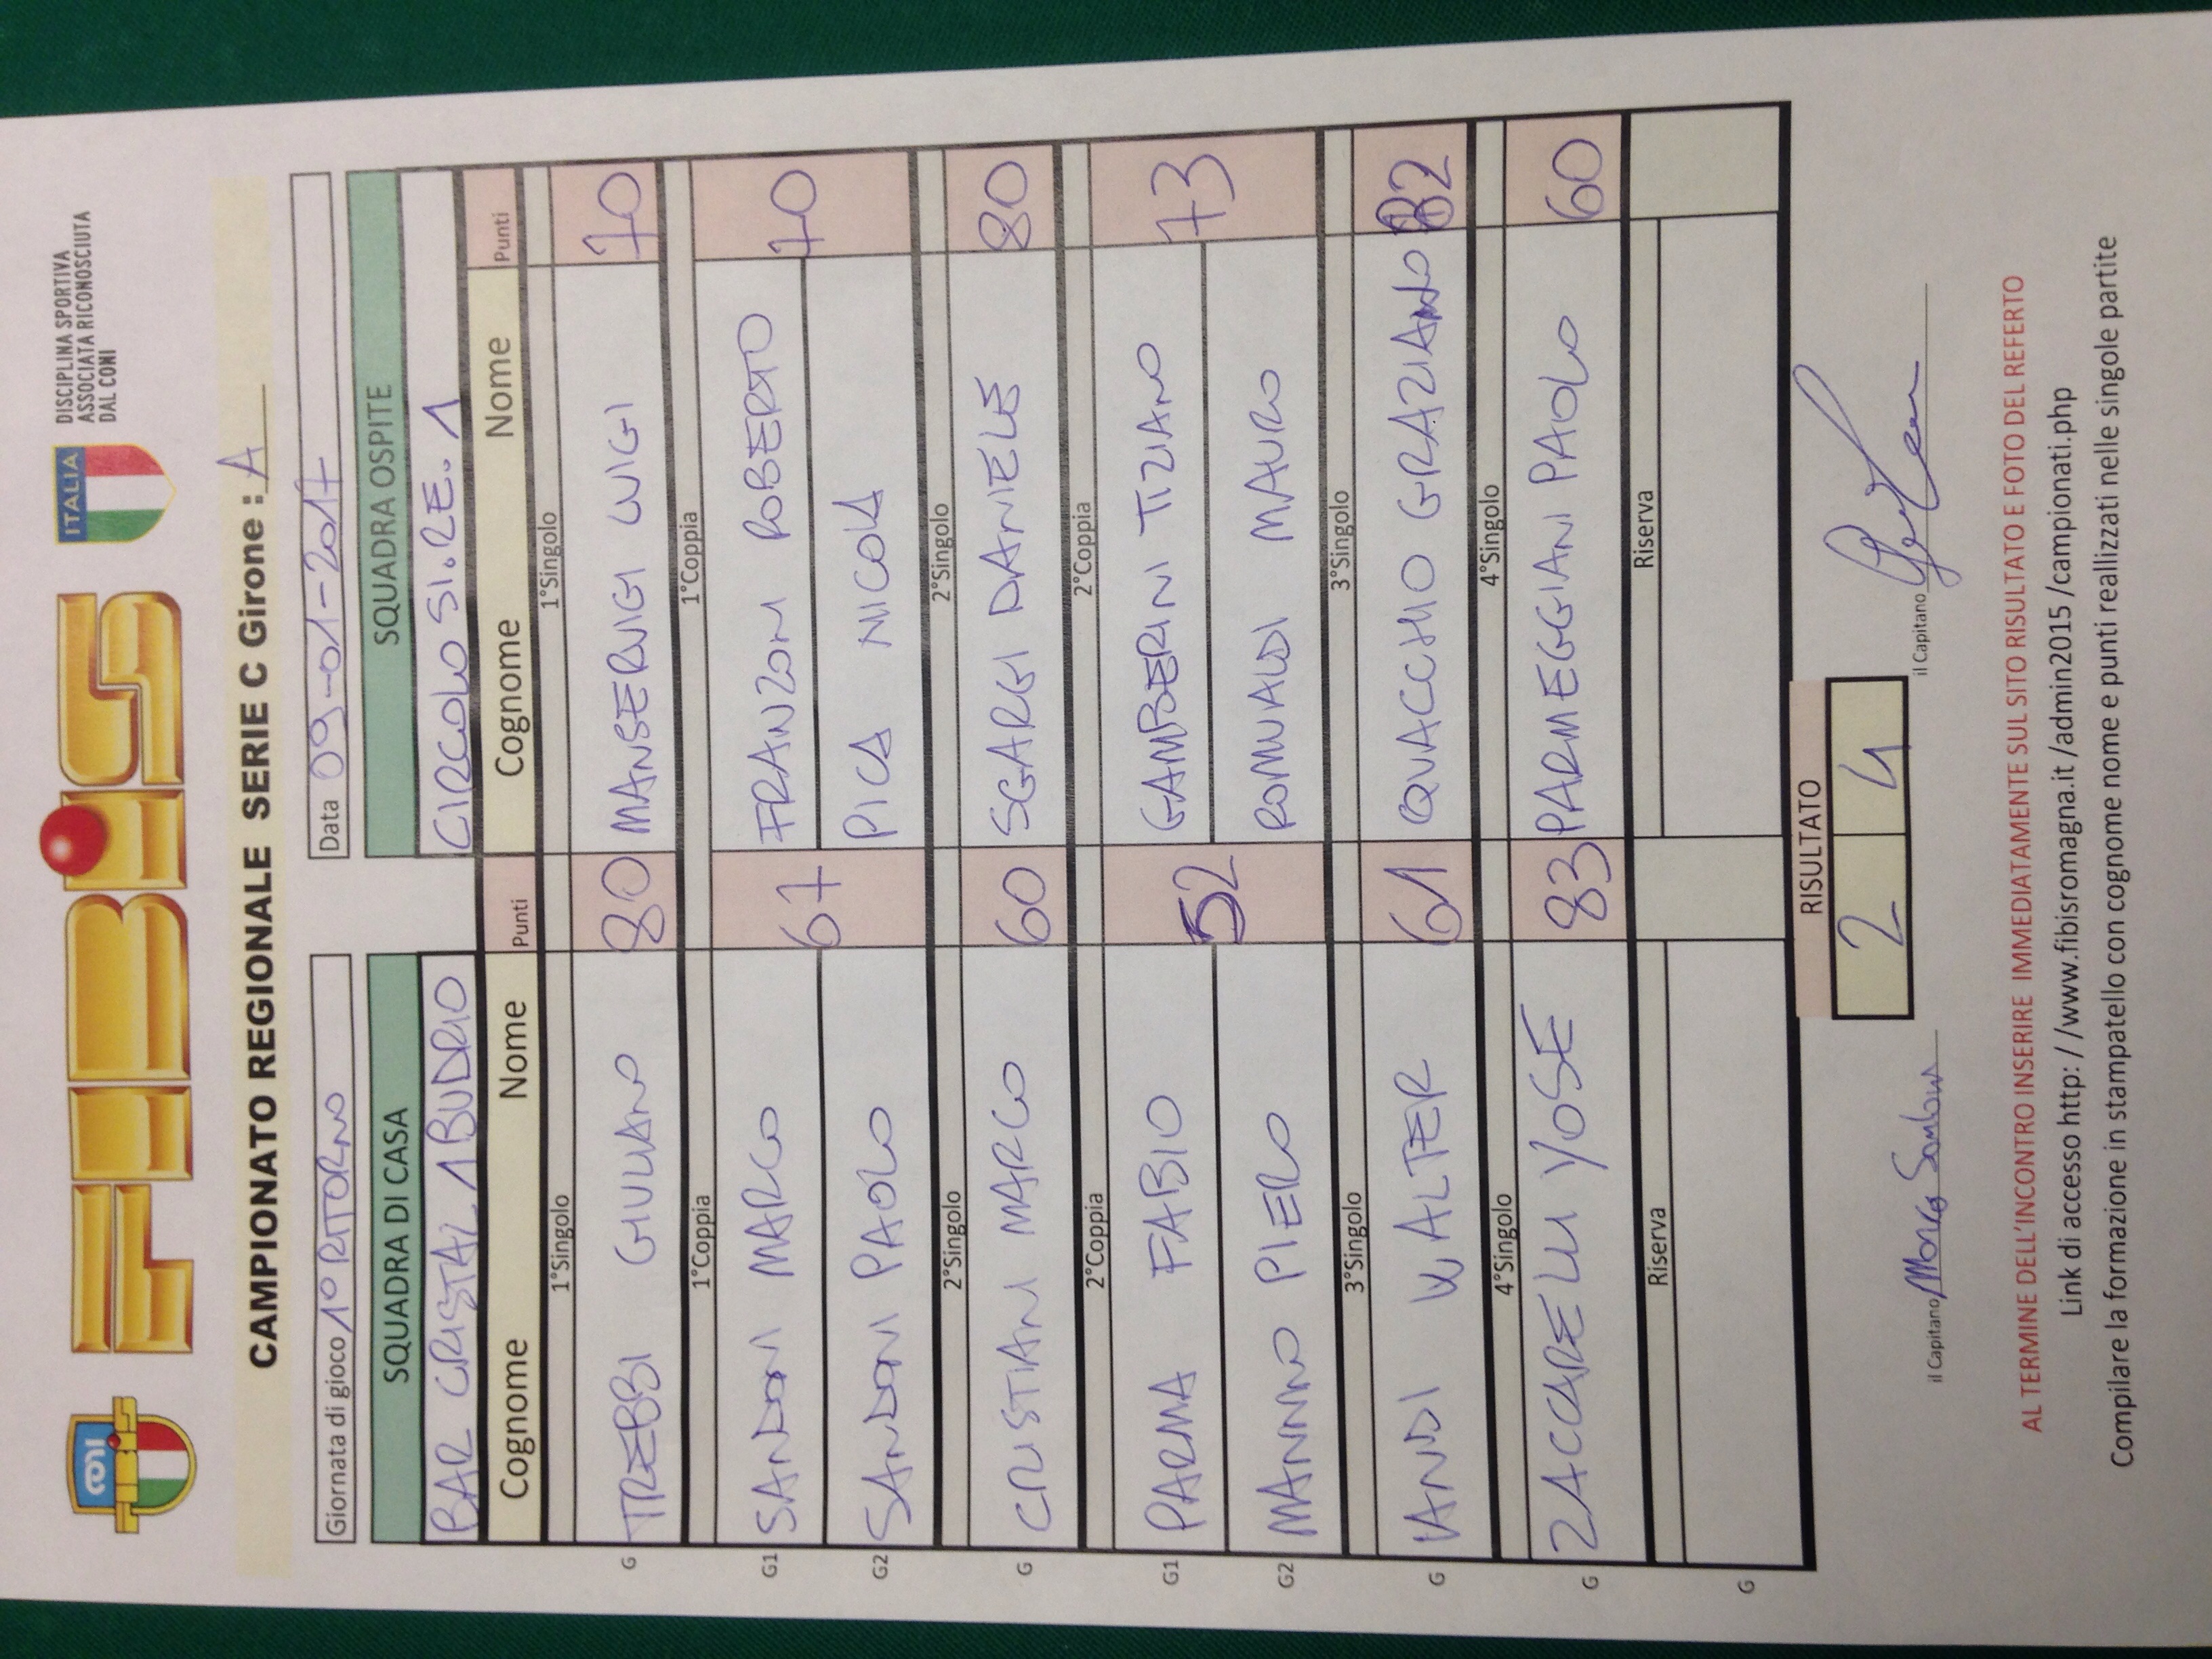 FIBiS
ITALIA
DISCIPLINA SPORTIVA
ASSOCIATA RICONOSCIUTA
DAL CONI
CAMPIONATO REGIONALE SERIE C Girone : A
Giornata di gioco 1° RITORNO Data 09-01-2017
SQUADRA DI CASA SQUADRA OSPITE
BAR CRISTAL 1 BUDRIO CIRCOLO SI.RE. 1
Cognome Nome Punti Cognome Nome Punti
1°Singolo 1°Singolo
G TREBBI GIULIANO 80 MANSERVIGI LUIGI 70
1°Coppia 1°Coppia
G1 SANDONI MARCO 67 FRANZONI ROBERTO 70
G2 SANDONI PAOLO PICA NICOLA
2°Singolo 2°Singolo
G CRISTIANI MARCO 60 SGARGI DANIELE 80
2°Coppia 2°Coppia
G1 PARMA FABIO 52 GAMBERINI TIZIANO 73
G2 MANNINO PIERO ROMUALDI MAURO
3°Singolo 3°Singolo
G VANDI WALTER 61 QUACCHIO GRAZIANO 82
4°Singolo 4°Singolo
G ZACCARELLI YOSE 83 PARMEGGIANI PAOLO 60
Riserva Riserva
G
RISULTATO
2 4
il Capitano Marco Sandoni il Capitano
AL TERMINE DELL'INCONTRO INSERIRE IMMEDIATAMENTE SUL SITO RISULTATO E FOTO DEL REFERTO
Link di accesso http: / /www.fibisromagna.it /admin2015 /campionati.php
Compilare la formazione in stampatello con cognome nome e punti reallizzati nelle singole partite